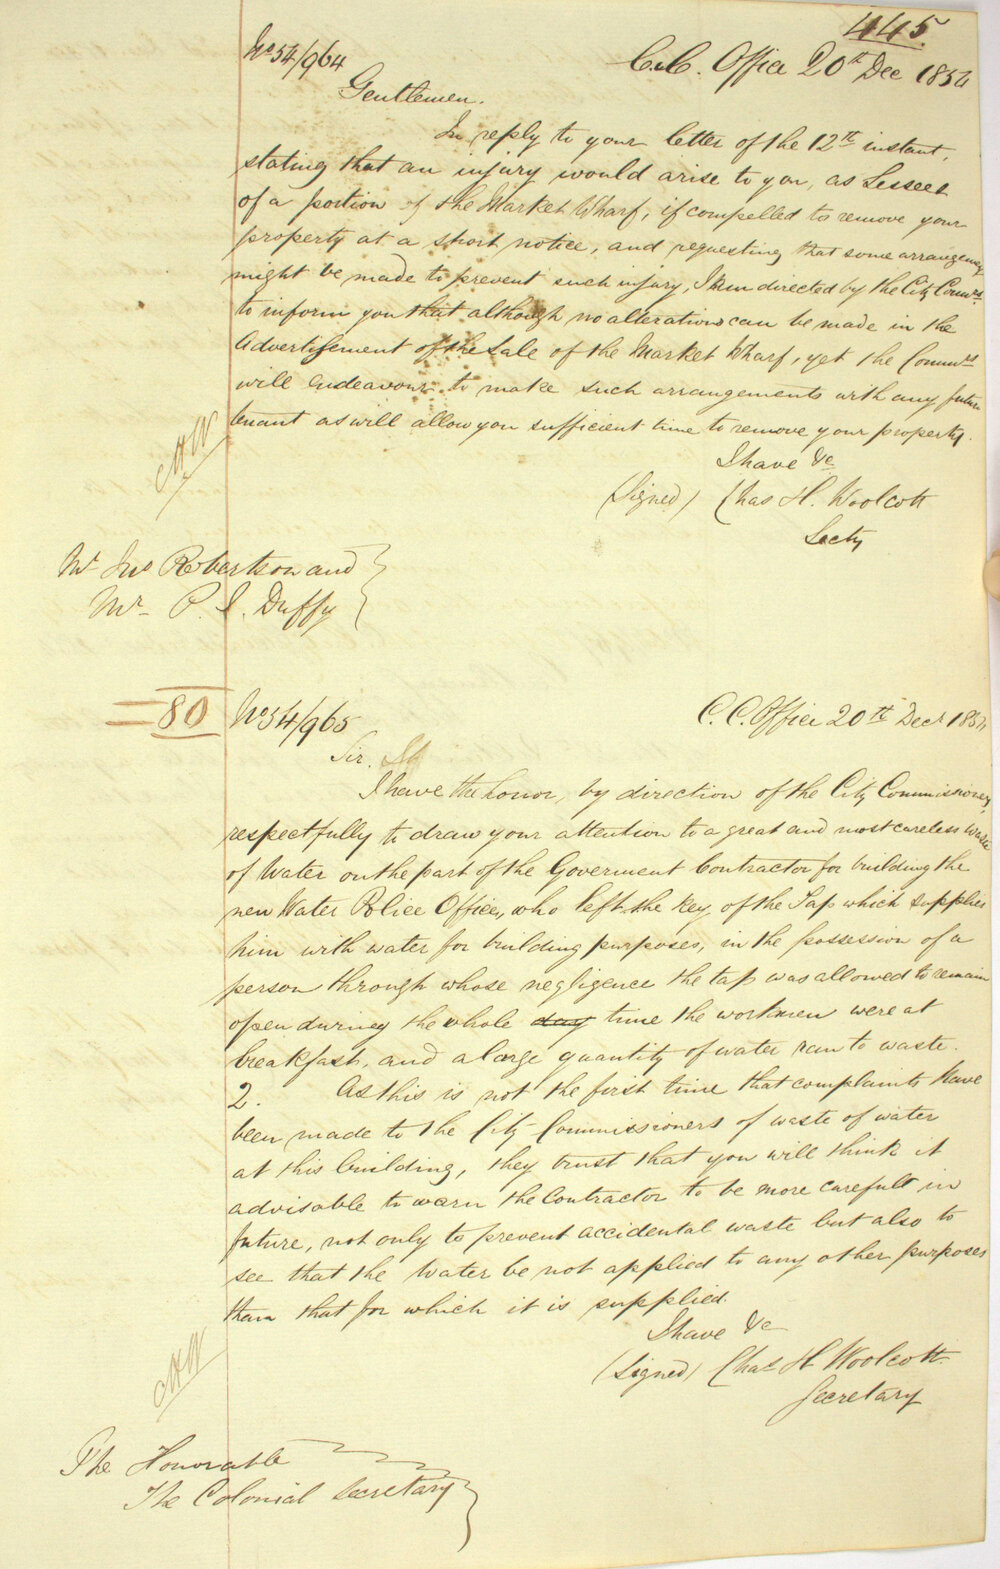 445.
No 54/964
C.C. Office 20th Dec 1854
Gentlemen.
In reply to your letter of the 12th instant,
stating that an injury would arise to you, as Lessees
of a portion of the Market Wharf, if compelled to remove your
property at a short notice, and requesting that some arrangement
might be made to prevent such injury, I am directed by the City Commrs
to inform you that although no alterations can be made in the
Advertisement of the Sale of the Market Wharf, yet the Commrs
will endeavour to make such arrangements with any future
tenant as will allow you sufficient time to remove your property.
I have &c
(Signed) Chas H. Woolcott
Secty
CHW
Mr Jno Robertson and
Mr P. J. Duffy
80
No 54/965
C. C. Office 20th Decr 1854
Sir.
I have the honor, by direction of the City Commissioners,
respectfully to draw your attention to a great and most careless waste
of Water on the part of the Goverment Contractor for building the
new Water Police Office, who left the key, of the Tap which supplies
him with water for building purposes, in the possession of a
person through whose negligence the tap was allowed to remain
open during the whole day time the workmen were at
breakfast, and a large quantity of water ran to waste.
2. As this is not the first time that complaints have
been made to the City Commissioners of waste of water
at this building, they trust that you will think it
advisable to warn the Contractor to be more carefull in
future, not only to prevent accidental waste but also to
see that the Water be not applied to any other purposes
than that for which it is supplied.
I have &c
(signed) Chas H Woolcott.
Secretary
CHW
The Honorable
The Colonial Secretary